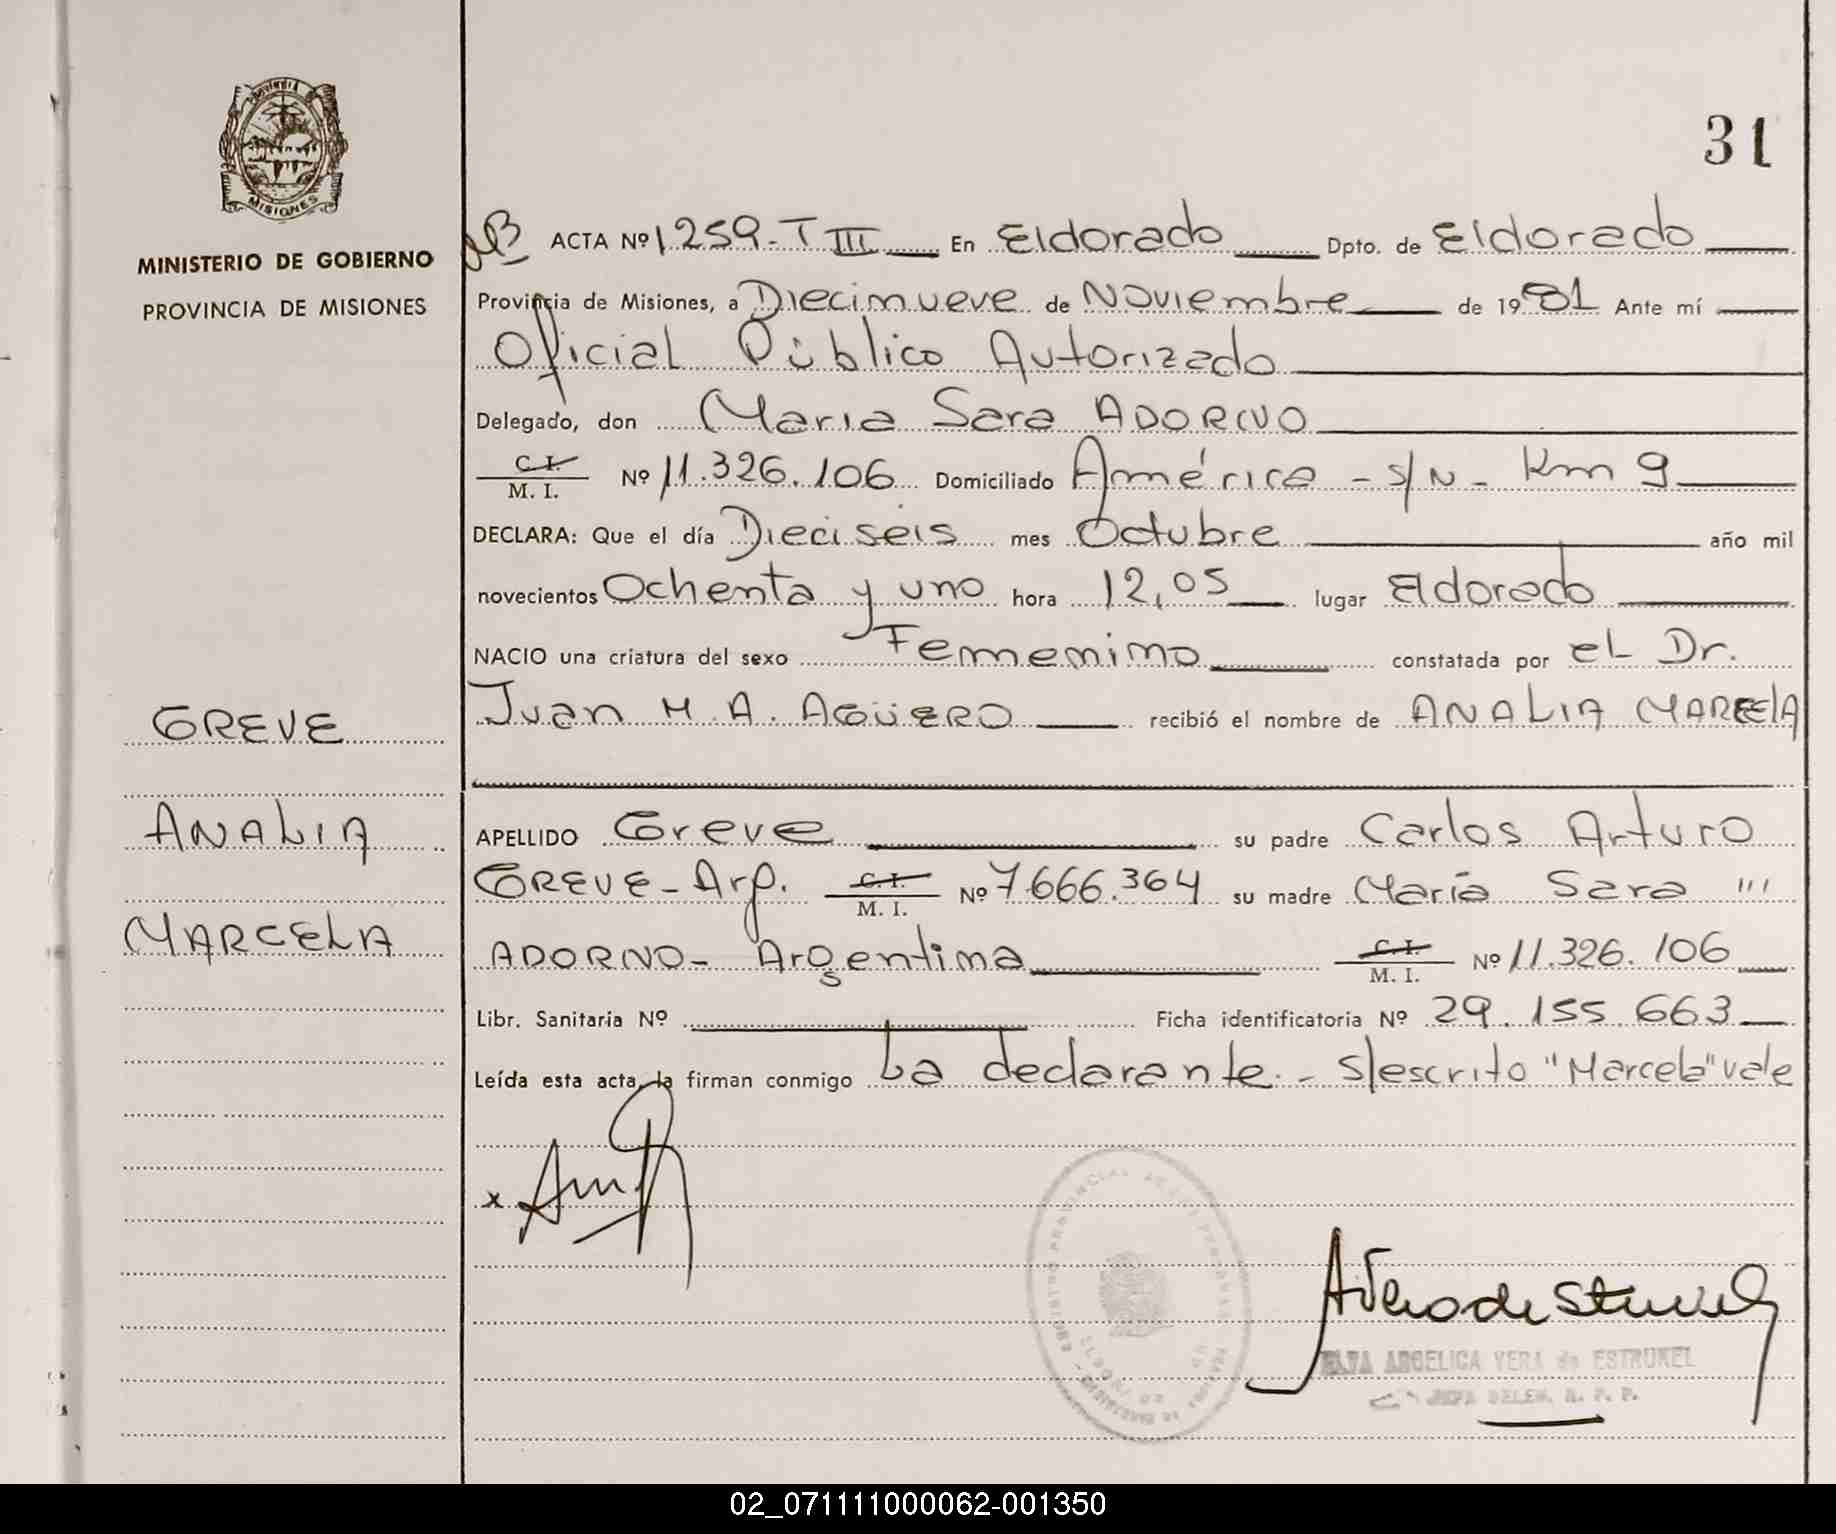 Provincia de
MISIONES
MINISTERIO DE GOBIERNO
PROVINCIA DE MISIONES
31
ACTA Nº 1.259-T III En Eldorado Dpto. de Eldorado
Provincia de Misiones, a Diecinueve de Noviembre de 1981 Ante mí
Oficial Público Autorizado
Delegado, don María Sara ADORNO
C.I. M. I. Nº 11.326.106 Domiciliado América - S/N - Km 9
DECLARA: Que el día Dieciseis mes Octubre año mil
novecientos Ochenta y uno hora 12,05 lugar Eldorado
NACIO una criatura del sexo Femenino constatada por el Dr.
Juan M. A. AGÜERO recibió el nombre de ANALIA MARCELA
GREVE
ANALIA
MARCELA
APELLIDO Greve su padre Carlos Arturo
GREVE - Arg. C.I. M. I. Nº 7.666.364 su madre María Sara '''
ADORNO - Argentina C.I. M. I. Nº 11.326.106
Libr. Sanitaria Nº Ficha identificatoria Nº 29.155.663
Leída esta acta, la firman conmigo La declarante.- S/escrito "Marcela" vale
x
ANGELICA VERA de ESTRUKEL
JEFA DELEG. R. P. P.
02_071111000062-001350